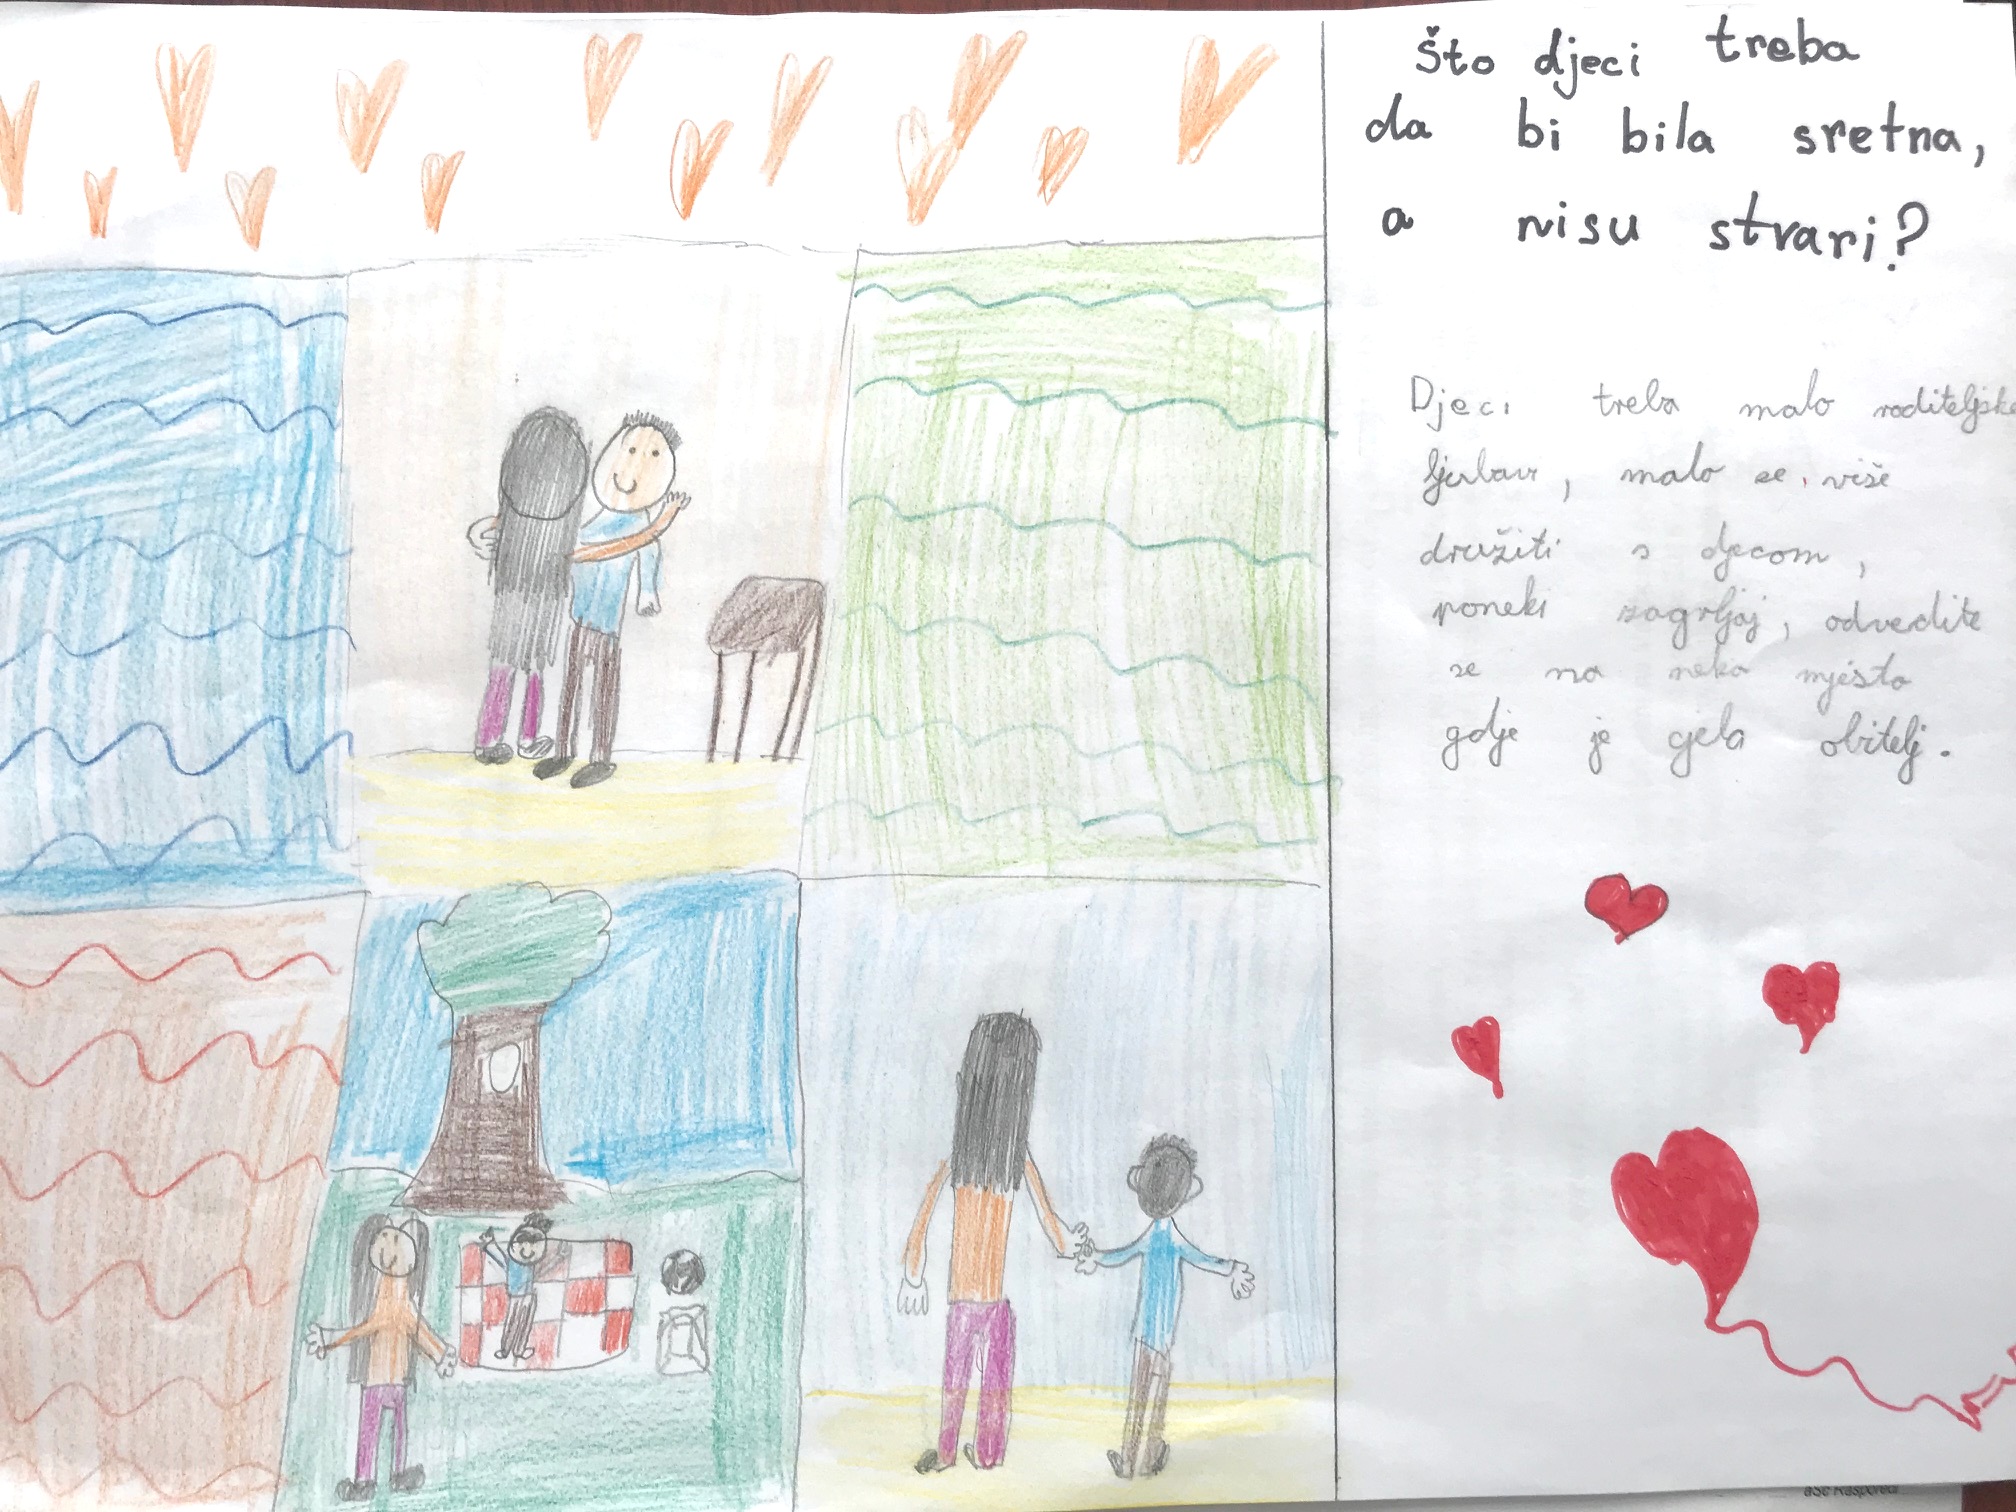 Što djeci treba
da bi bila sretna,
a nisu stvari?
Djeci treba malo roditeljske
ljubavi, malo se više
družiti s djecom,
poneki zagrljaj, odvedite
se na neko mjesto
gdje je cjela obitelj.
aSc Raspored